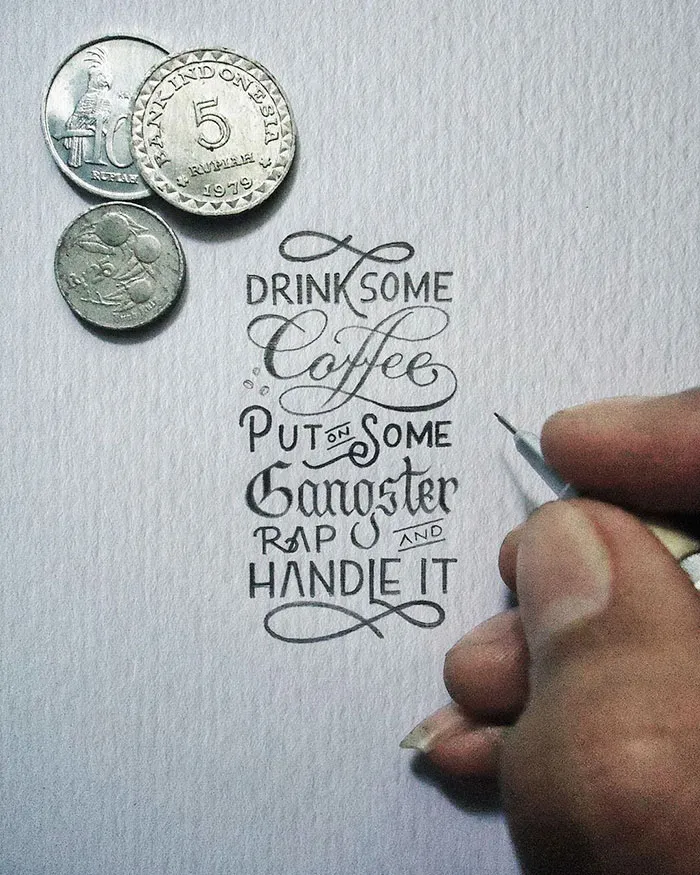 BANK INDONESIA
5
RUPIAH
1979
10
RUPIAH
Rp 25
DRINK SOME
Coffee
PUT ON SOME
Gangster
RAP AND
HANDLE IT